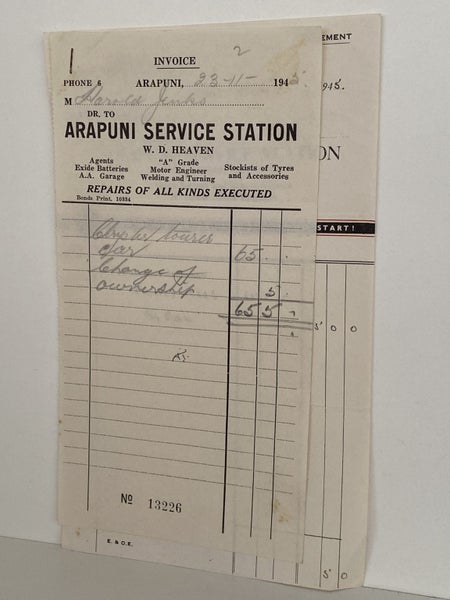 INVOICE
2
PHONE 6 ARAPUNI, 23-11- 1945.
M Harold Jenks
DR. TO
ARAPUNI SERVICE STATION
W. D. HEAVEN
Agents
Exide Batteries
A.A. Garage
"A" Grade
Motor Engineer
Welding and Turning
Stockists of Tyres
and Accessories
REPAIRS OF ALL KINDS EXECUTED
Bonds Print, 10884
Chrysler tourer
car 65 . .
Change of
ownership 5 .
65 5 -
No 13226
EMENT
1945.
ON
START!
5 0 0
E. & O.E.
5 0